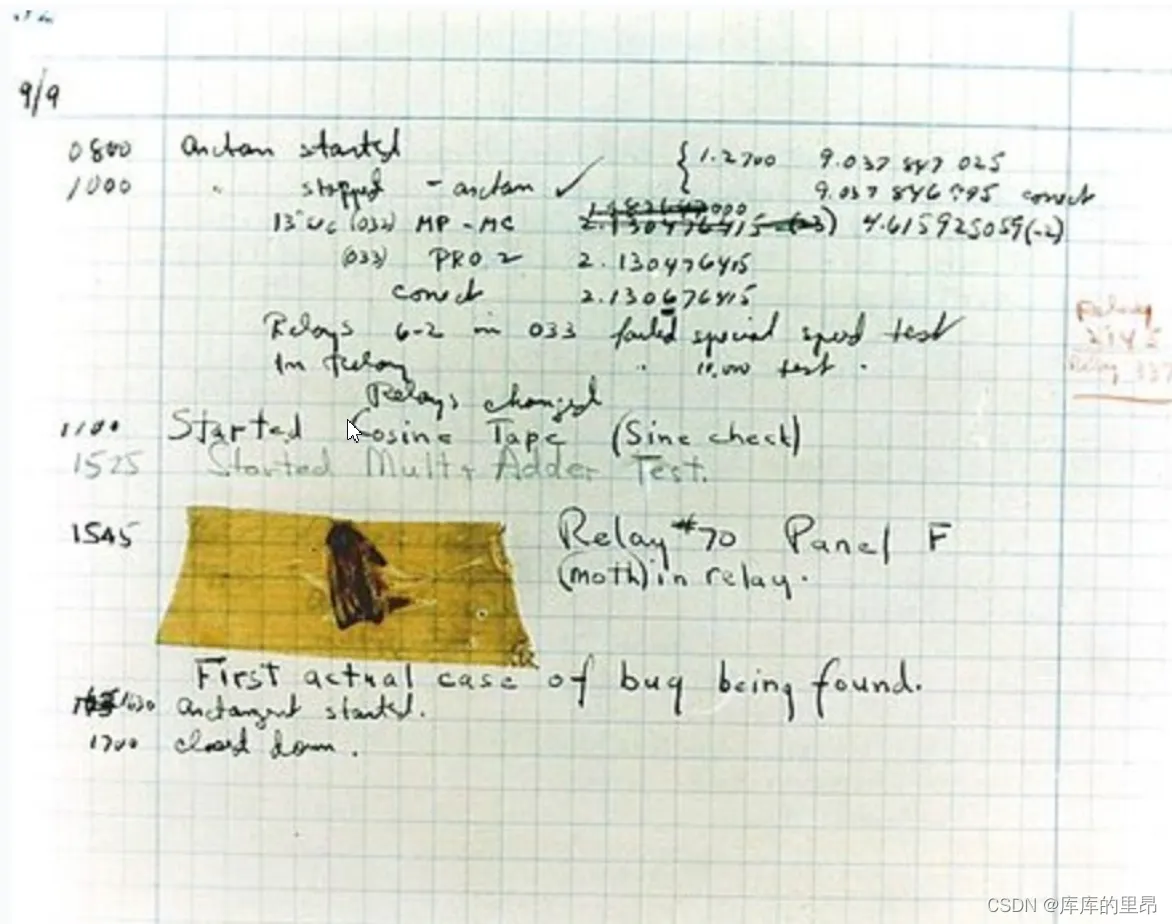 9/9
0800 arctan started { 1.2700 9.037 847 025
1000 " stopped - arctan ✓ 9.037 846 995 correct
13" uc (032) MP - MC 2.130476415 (-3) 4.615925059(-2)
(033) PRO 2 2.130476415
correct 2.130676415
Relays 6-2 in 033 failed special speed test
In Relay " 10.000 test .
Relay
2145
Relay 337
Relays changed
1100 Started Cosine Tape (Sine check)
1525 Started Mult + Adder Test.
1545 Relay #70 Panel F
(moth) in relay.
First actual case of bug being found.
1630 arctangent started.
1700 closed down.
CSDN @库库的里昂